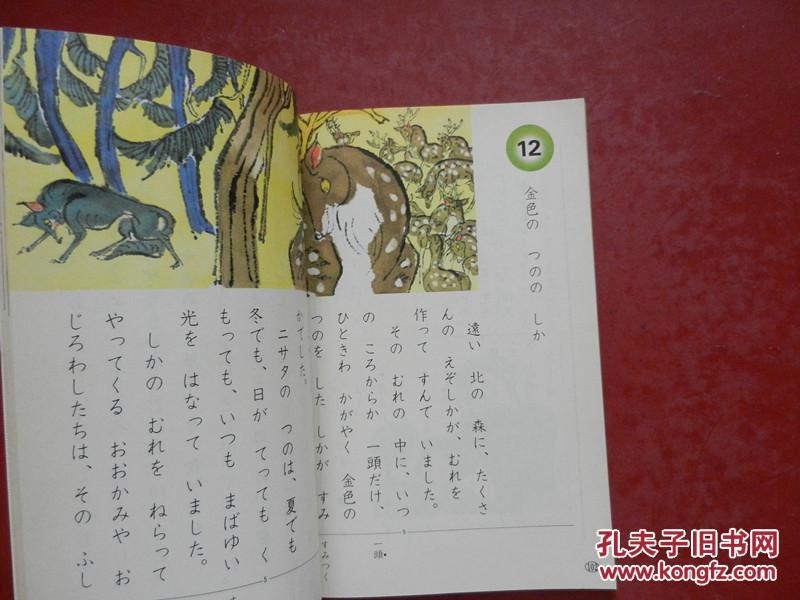 12
金色の つのの しか
遠い 北の 森に、たくさ
んの えぞしかが、むれを
作って すんで いました。
その むれの 中に、いつ
の ころからか 一頭だけ、
ひときわ かがやく 金色の
つのを した しかが すみ
5
一頭
すみつく
ニサタの つのは、夏でも
冬でも、日が てっても く
もっても、いつも まばゆい
光を はなって いました。
しかの むれを ねらって
やってくる おおかみや お
じろわしたちは、その ふし
5
孔夫子旧书网
www.kongfz.com